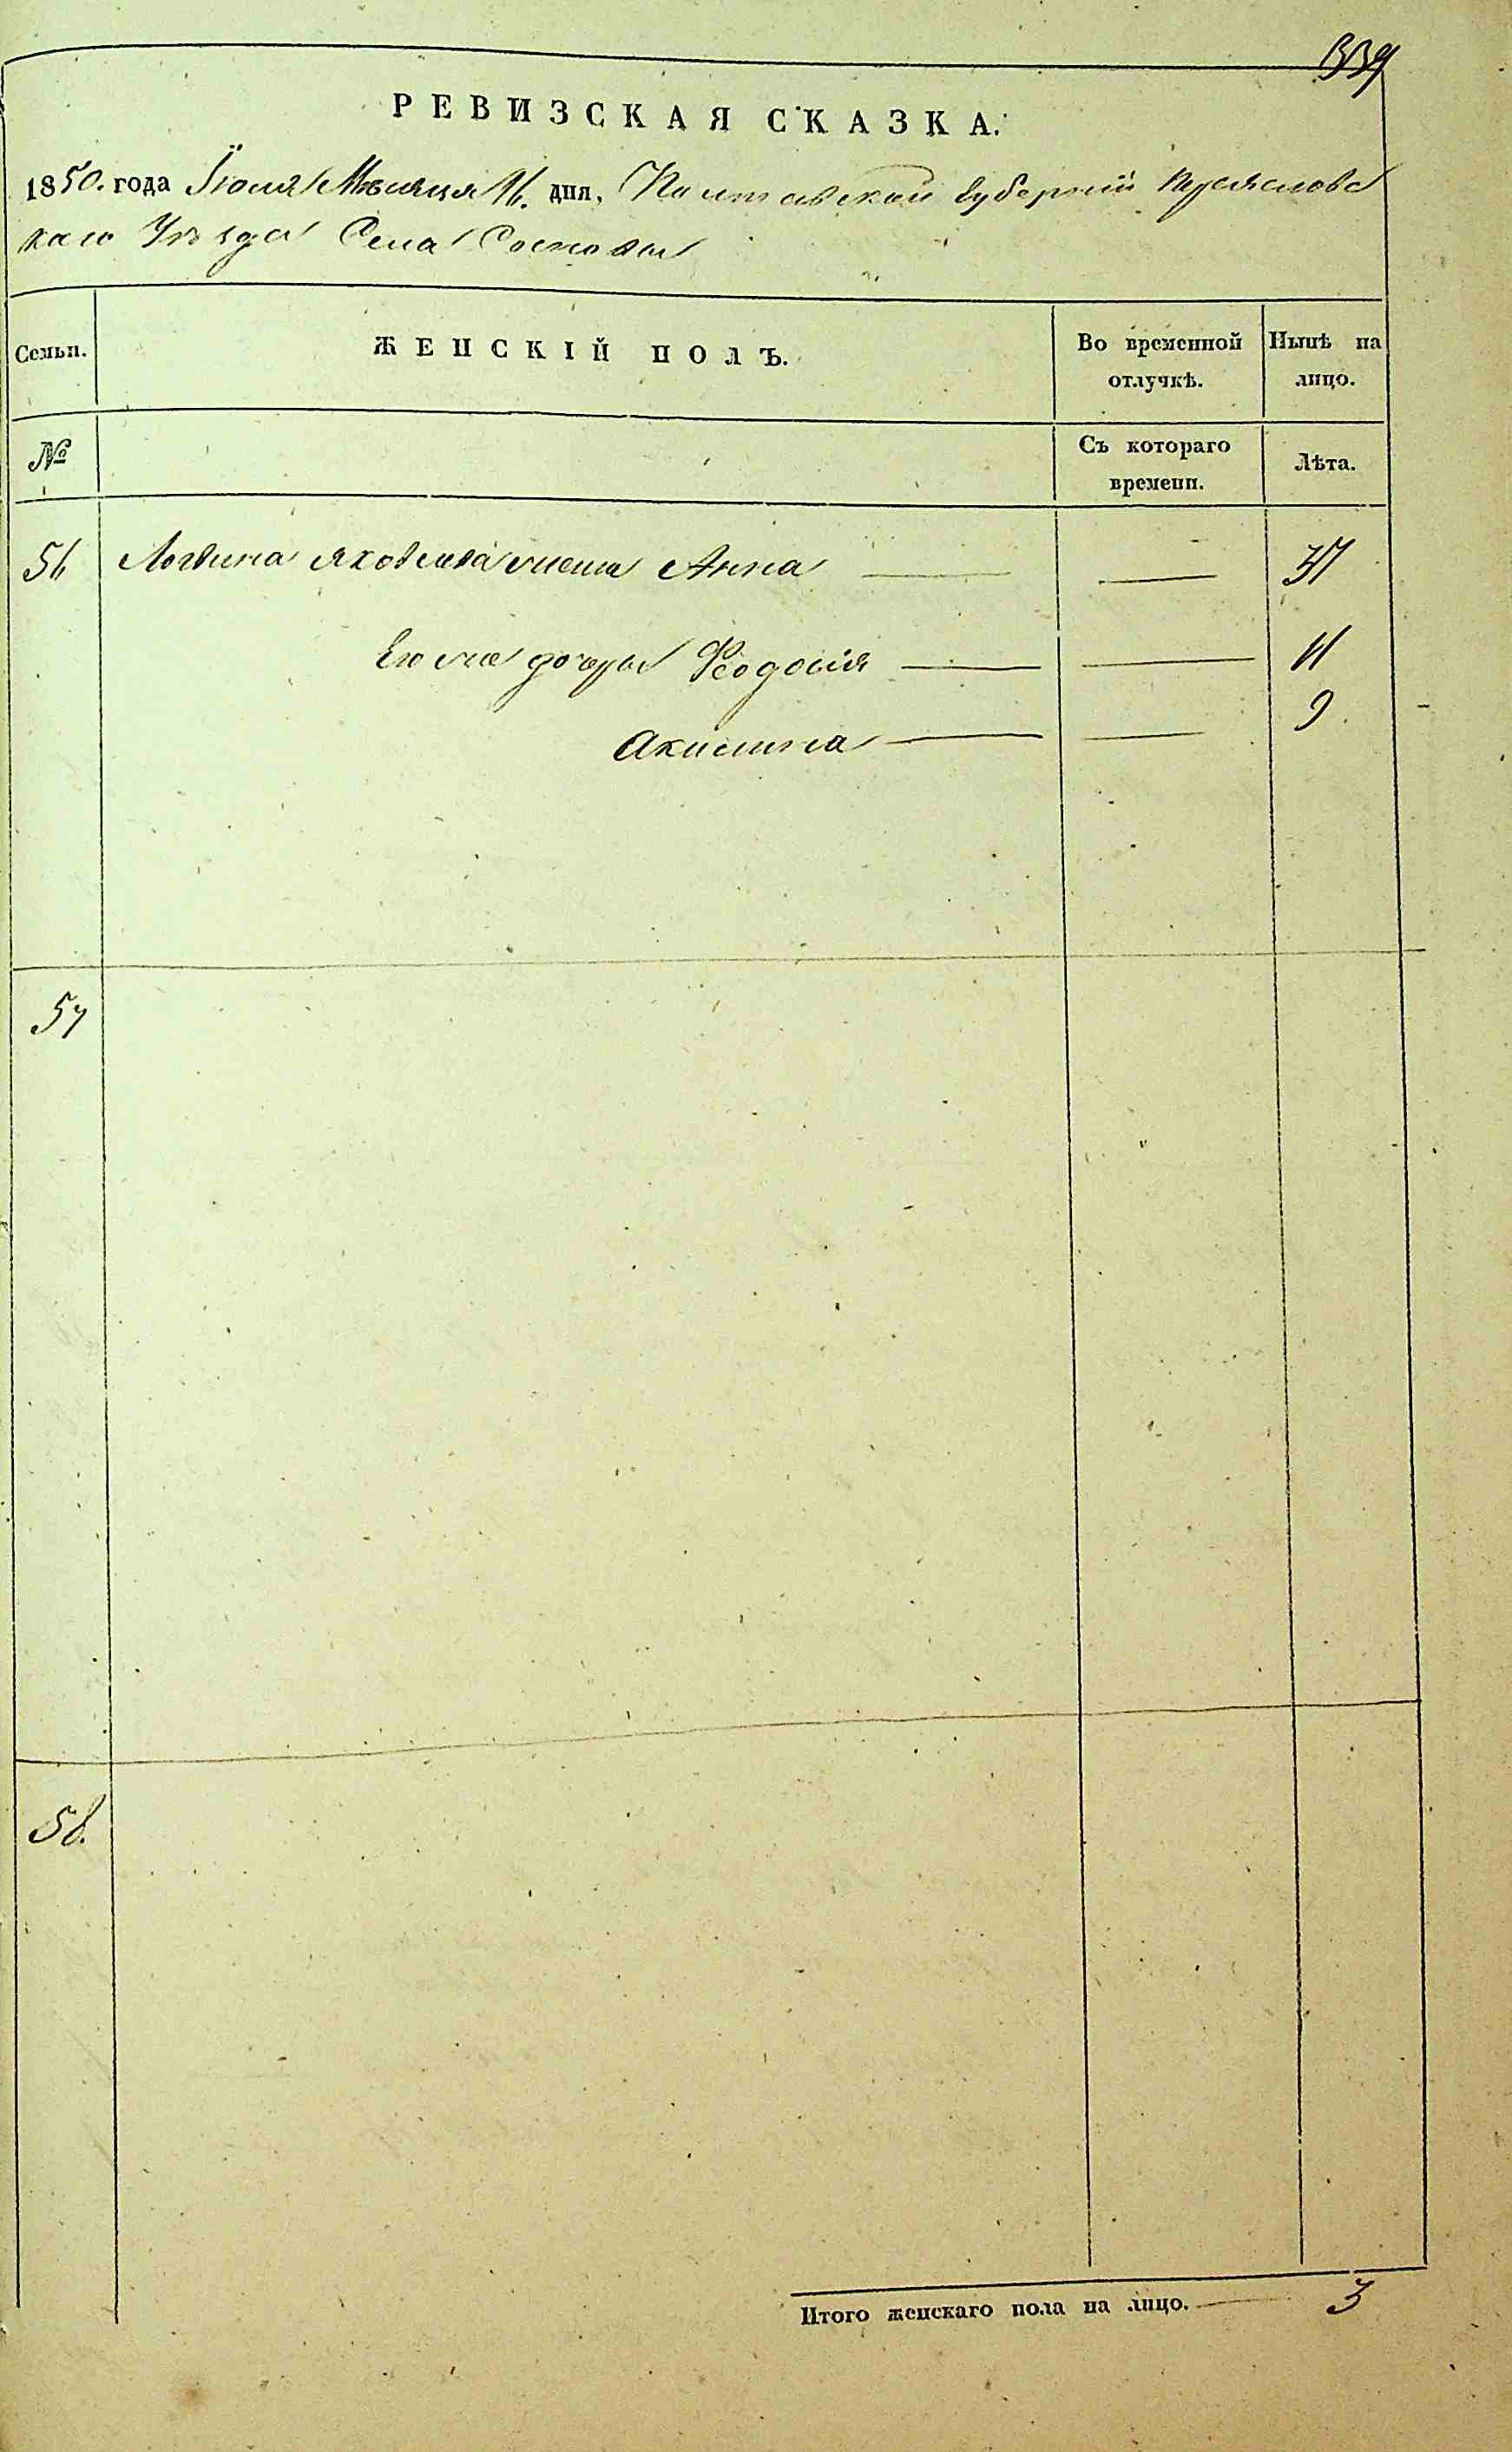 339
РЕВИЗСКАЯ СКАЗКА.
1850. года Іюля Мѣсяца 16. дня, Полтавской Губерніи Переяславс
каго Уѣзда Села Сосновы
Семьи. ЖЕНСКІЙ ПОЛЪ. Во временной отлучкѣ. Нынѣ на лицо.
№ Съ котораго времени. Лѣта.
56 Логвина Яковлева жена Анна 37
Его же дочери Ѳеодосія 11
Акилина 9
57
58.
Итого женскаго пола на лицо. 3